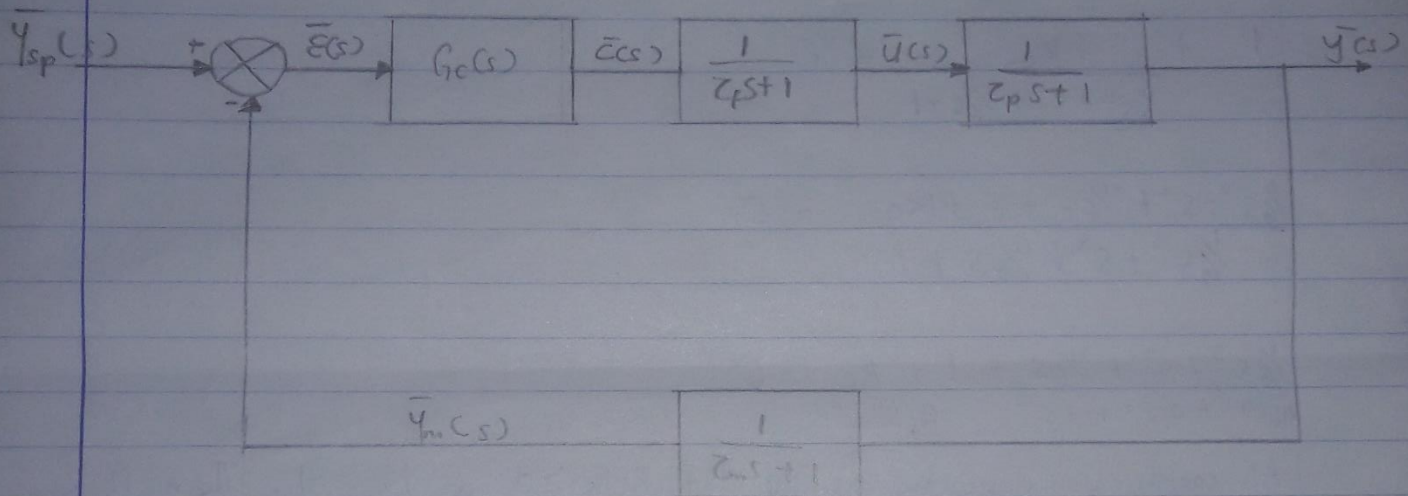 ȳsp(s) + ε̄(s) Gc(s) c̄(s) 1/(τfs+1) ū(s) 1/(τps+1) ȳ(s)
-
ȳm(s) 1/(τms+1)